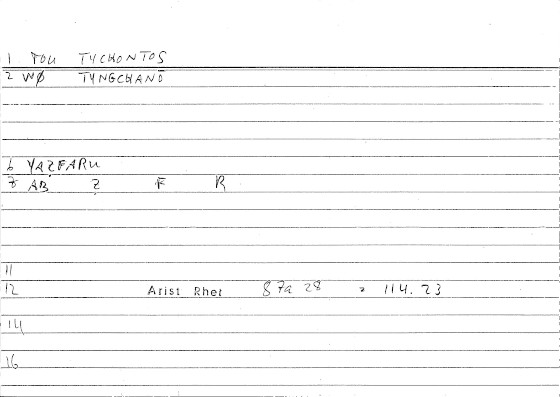 1 TOU TYCHONTOS
2 WØ TYNGCHANO
6 YAZFARU
7 AB Z F R
11
12 Arist Rhet 87a 28 = 114.23
14
16